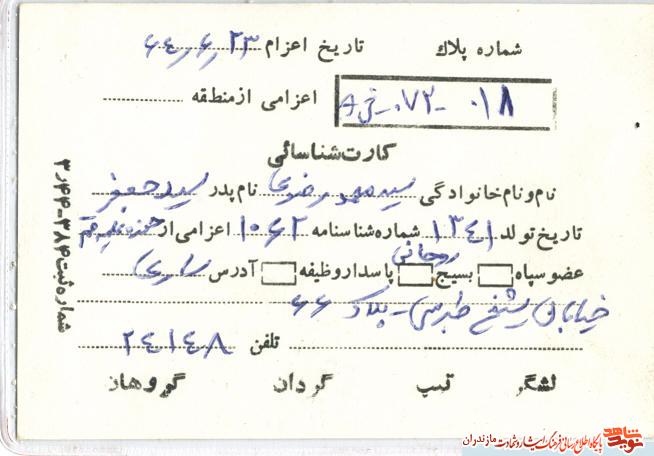 شماره پلاک تاریخ اعزام ۶۴٫۶٫۲۳
۰۱۸ - ۰۷۲ -
اعزامی از منطقه
کارت شناسائی
نام و نام خانوادگی سید محمود رضوی نام پدر سید جعفر
تاریخ تولد ۱۳۴۱ شماره شناسنامه ۱۰۶۲ اعزامی از حوزه علمیه قم
روحانی
عضو سپاه بسیج پاسدار وظیفه آدرس ساری
خیابان شیخ طبرسی - پلاک ۶۶
تلفن ۲۴۱۴۸
لشگر تیپ گردان گروهان
شماره ثبت ۳۸۴-۳٫۴۴
نوید شاهد
پایگاه اطلاع رسانی فرهنگ ایثار و شهادت مازندران